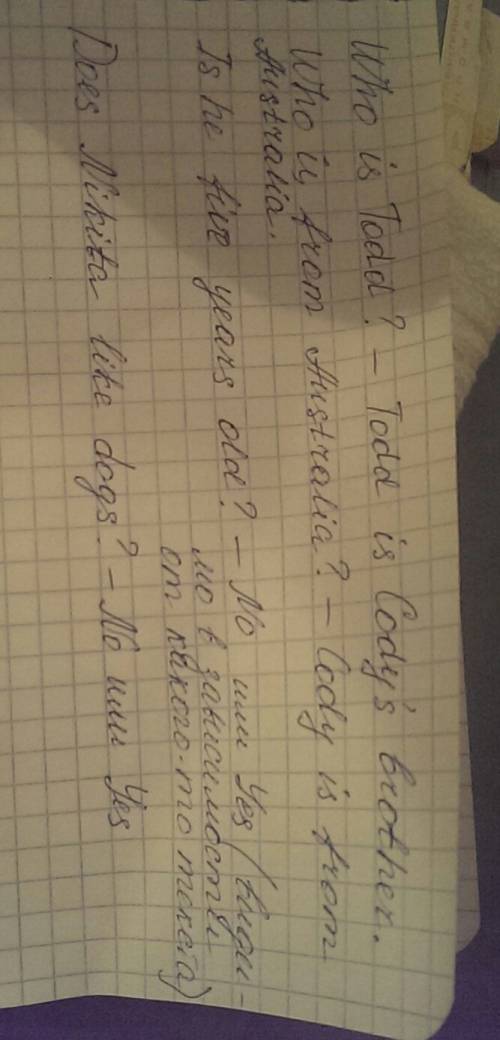 Who is Todd? – Todd is Cody's brother.
Who is from Australia? – Cody is from
Australia.
Is he five years old? – No или Yes (види-
мо в зависимости
от какого-то текста)
Does Nikita like dogs? – No или Yes